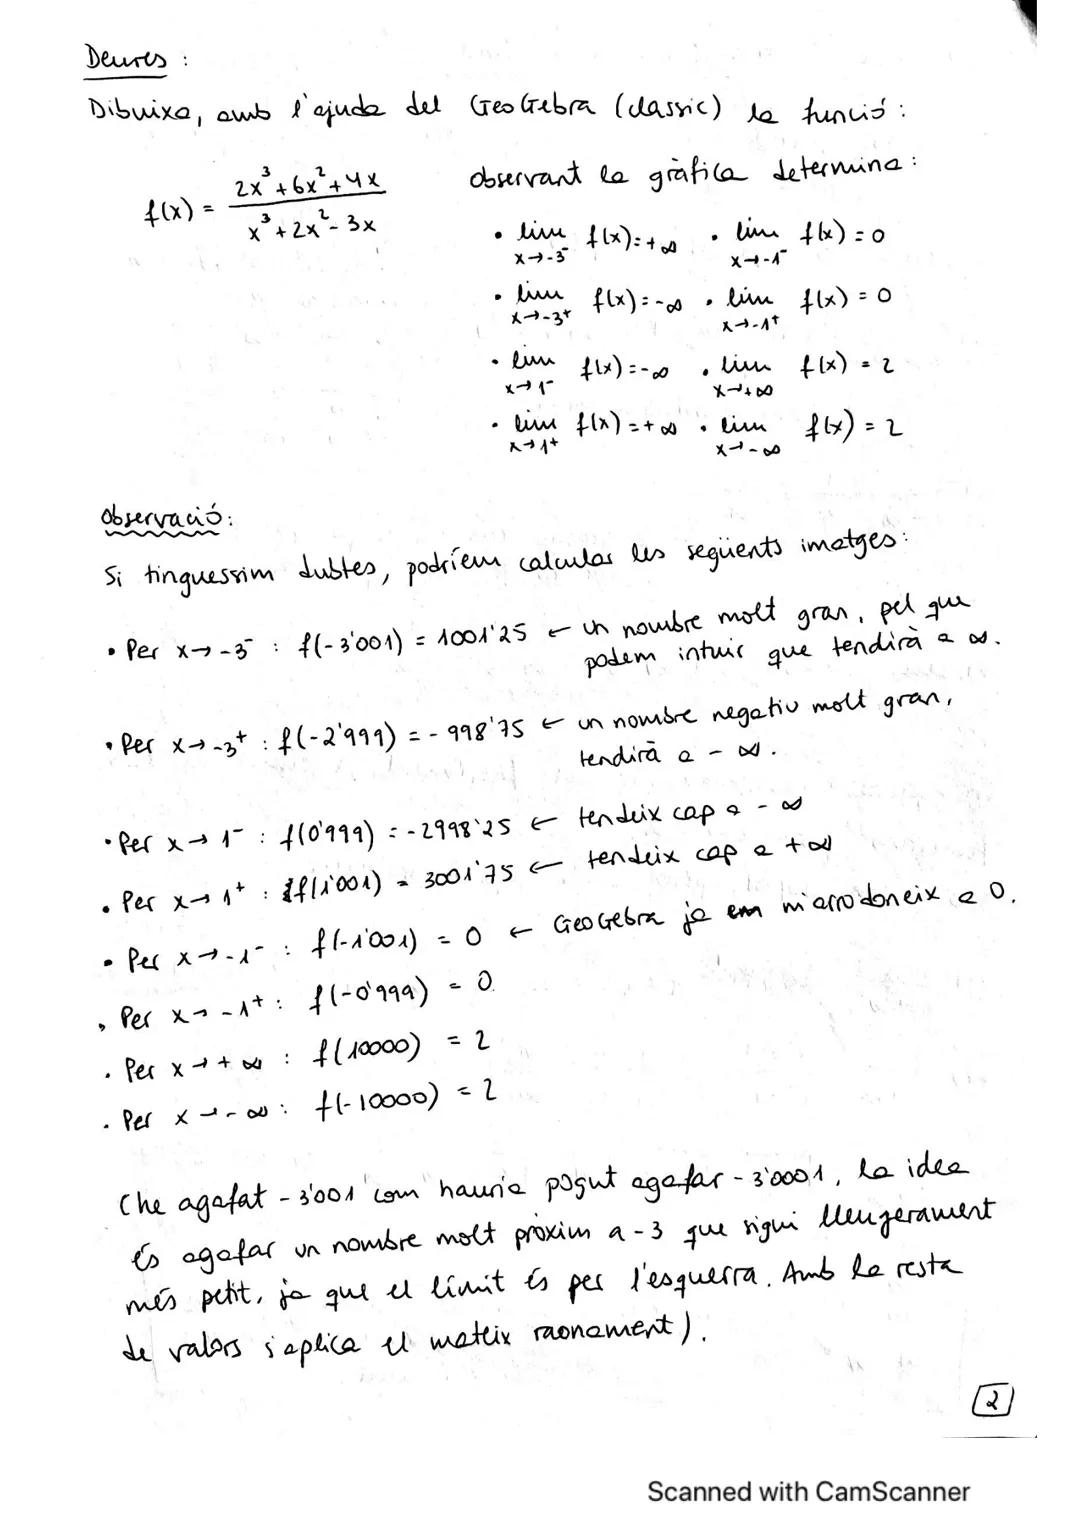 Deures :
Dibuixa, amb l'ajuda del GeoGebra (classic) la funció :
f(x) = (2x³+6x²+4x)/(x³+2x²-3x)
observant la gràfica determina :
• lim x→-3⁻ f(x)=+∞ • lim x→-1⁻ f(x)=0
• lim x→-3⁺ f(x)=-∞ • lim x→-1⁺ f(x)=0
• lim x→1⁻ f(x)=-∞ • lim x→+∞ f(x)=2
• lim x→1⁺ f(x)=+∞ • lim x→-∞ f(x)=2
Observació:
Si tinguessim dubtes, podríem calcular les següents imatges:
• Per x→-3⁻ : f(-3'001) = 1001'25 ← un nombre molt gran, pel que
podem intuir que tendirà a ∞.
• Per x→-3⁺ : f(-2'999) = -998'75 ← un nombre negatiu molt gran,
tendirà a -∞.
• Per x→1⁻ : f(0'999) = -2998'25 ← tendeix cap a -∞
• Per x→1⁺ : f(1'001) = 3001'75 ← tendeix cap a +∞
• Per x→-1⁻ : f(-1'001) = 0 ← GeoGebra ja em m'arrodoneix a 0.
• Per x→-1⁺ : f(-0'999) = 0
• Per x→+∞ : f(10000) = 2
• Per x→-∞ : f(-10000) = 2
(he agafat -3'001 com hauria pogut agafar -3'0001, la idea
és agafar un nombre molt pròxim a -3 que sigui lleugerament
més petit, ja que el límit és per l'esquerra. Amb la resta
de valors s'aplica el mateix raonament).
2
Scanned with CamScanner